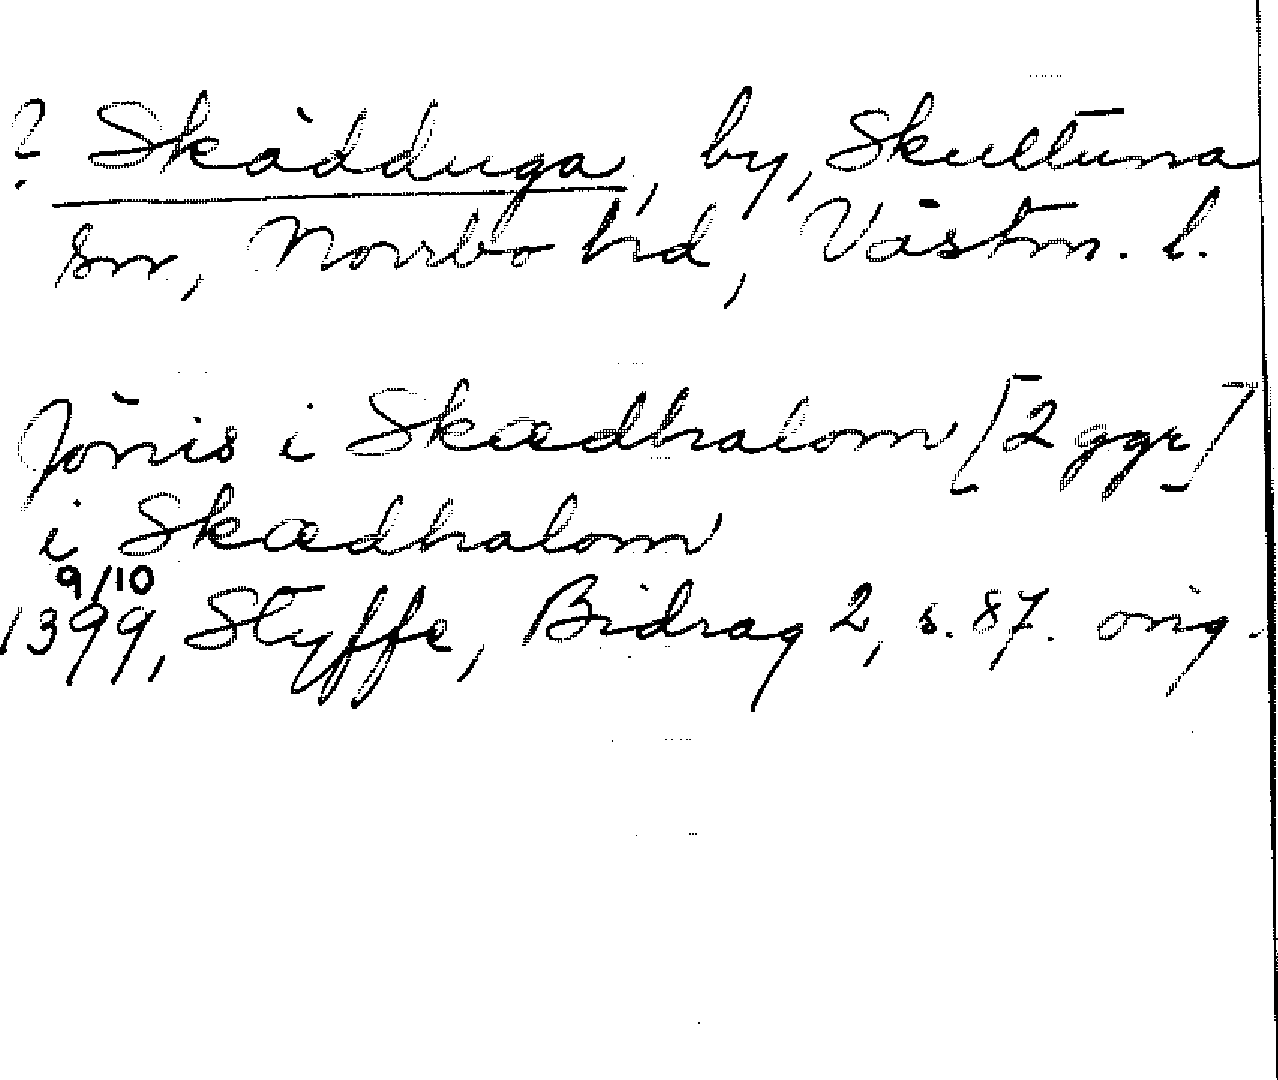 ? Skädduga, by, Skultuna
sn, Norrbo hd, Västm. l.
Jönis i Skædhalom [2 ggr]
i Skædhalom
9/10
1399, Styffe, Bidrag 2, s. 87. orig.